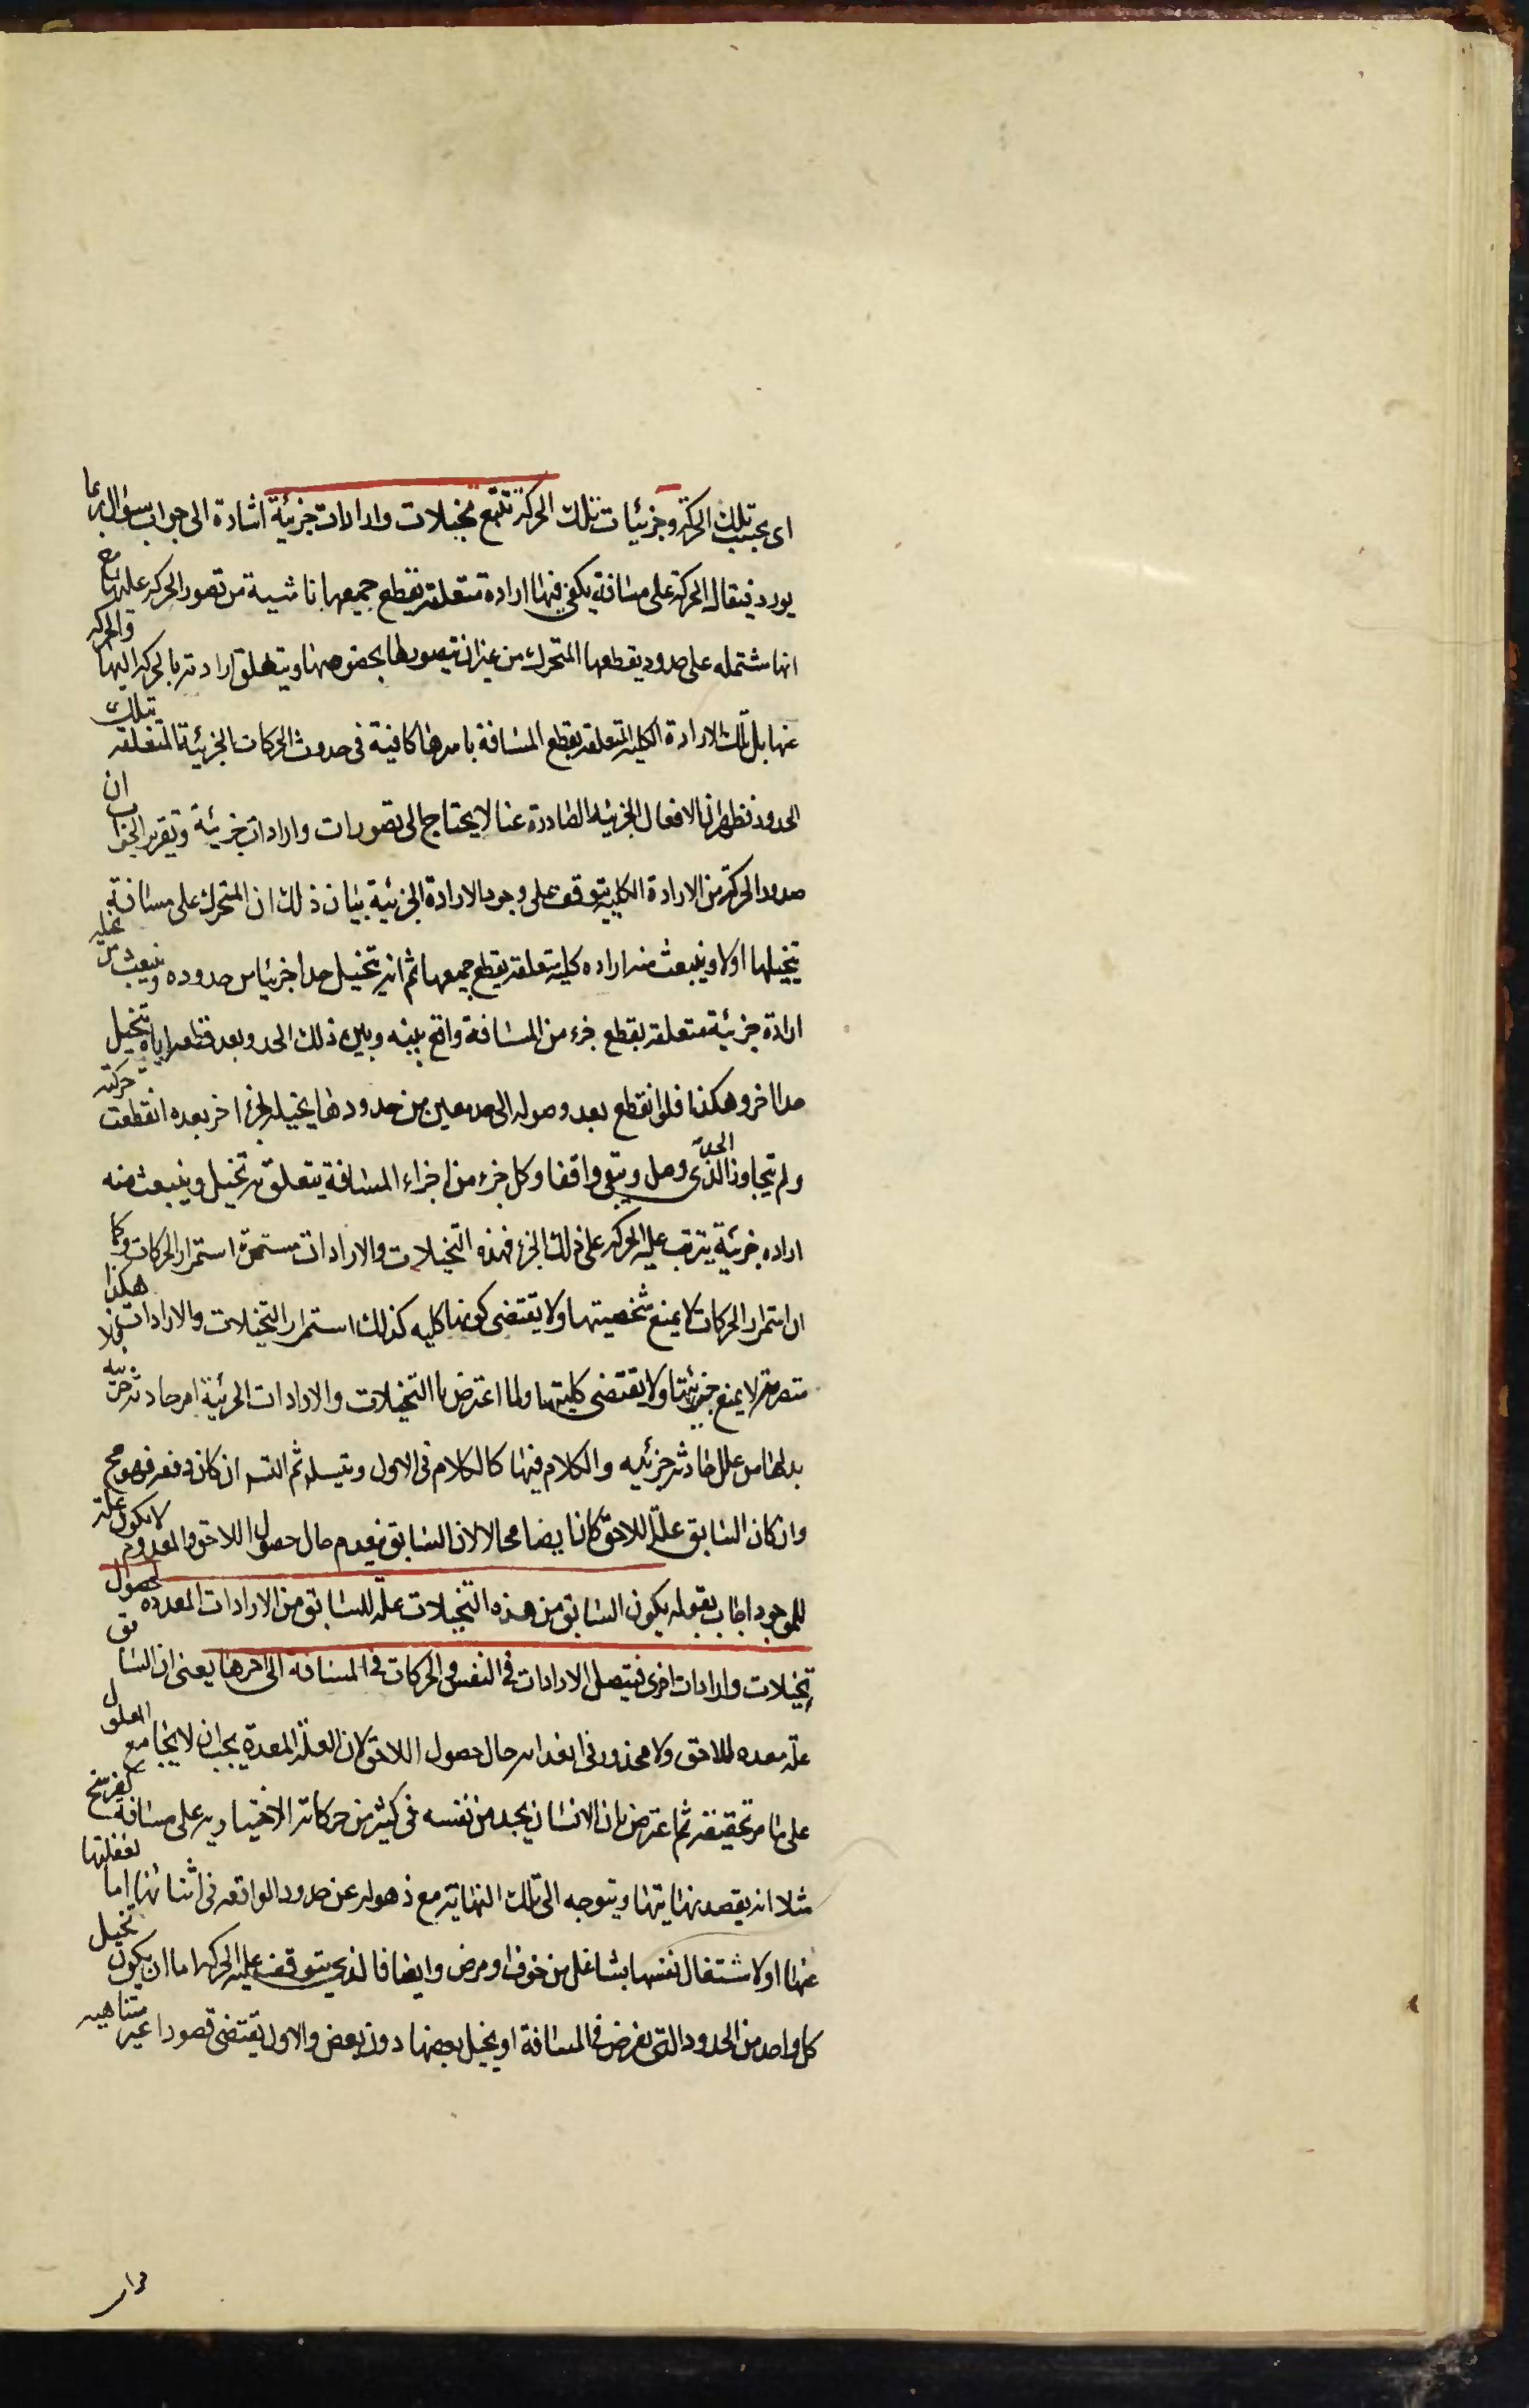 اى بحسب تلك الحركة وجزئيات تلك الحركة تتبع تخيلات وارادات جزئية اشارة الى جواب سؤال ربما
يورد فيقال الحركة على مسافة يكفى فيها ارادة متعلقة بقطع جميعها ناشية من تصور الحركة عليها مع
انها مشتمله على حدود يقطعها المتحرك من غير ان يتصورها بخصوصها ويتعلق ارادته بالحركة اليها والحركه
عنها بل تلك الارادة الكلية المتعلقة بقطع المسافة باسرها كافية فى حدوث الحركات الجزئية المتعلقه بتلك
الحدود فظهر ان الافعال الجزئية الصادرة عنا لا يحتاج الى تصورات وارادات جزئية وتقرير الجواب ان
حدود الحركة من الارادة الكلية يتوقف على وجود الارادة الجزئية بيان ذلك ان المتحرك على مسافة
يتخيلها اولا وينبعث منه اراده كلية متعلقة بقطع جميعها ثم انه تخيل حدا جزئيا من حدوده وينبعث عليه
ارادة جزئية متعلقة بقطع جزء من المسافة واقع بينه وبين ذلك الحد وبعد قطعه اياه يتخيل
حدا اخر وهكذا فلو انقطع بعد وصوله الى حد معين من حدودها يخيله لجزء اخر بعده انقطعت حركته
ولم يتجاوز الحد الذى وصل ويبقى واقفا وكل جزء من اجزاء المسافة يتعلق به تخيل وينبعث منه
اراده جزئية يترتب عليه الحركه على ذلك الجزء فهذه التخيلات والارادات مستمرة استمرار الحركات وكما
ان استمرار الحركات لا يمنع شخصيتها ولا يقتضى كونها كليه كذلك استمرار التخيلات والارادات هكذا
متصرمة لا يمنع جزئيتها ولا يقتضى كليتها ولما اعترض بان التخيلات والارادات الجزئية امر حادثة جزئيه
بد لها من علل حادثة جزئيه والكلام فيها كالكلام فى الاول ويتسلسل ثم التسلسل ان كان دفعة فهو مح
وان كان السابق علة للاحق كان ايضا محالا لان السابق ينعدم حال حصول اللاحق والمعدوم لا يكون علة
للموجود اجاب بقوله يكون السابق من هذه التخيلات علة للسابق من الارادات المعده لحصول
تخيلات وارادات اخرى فيتصل الارادات فى النفس والحركات فى المسافه الى اخرها يعنى ان السابق
علة معده للاحق ولا محذور فى انعدامه حال حصول اللاحق لان العلة المعدة يجب ان لا يجامع المعلول
على ما مر تحقيقه ثم اعترض بان الانسان يجد من نفسه فى كثير من حركاته الاختياريه على مسافة كفرسخ
مثلا انه يقصد نهايتها ويتوجه الى تلك النهاية مع ذهوله عن حدود الواقعه فى اثنائها اما لغفلتها
عنها او لاشتغال نفسها بشاغل من خوف او مرض وايضا فالذى يتوقف عليه الحركه اما ان يكون تخيل
كل واحد من الحدود التى يفرض فى المسافة او يخيل بعضها دون بعض والاول يقتضى قصورا غير متناهيه